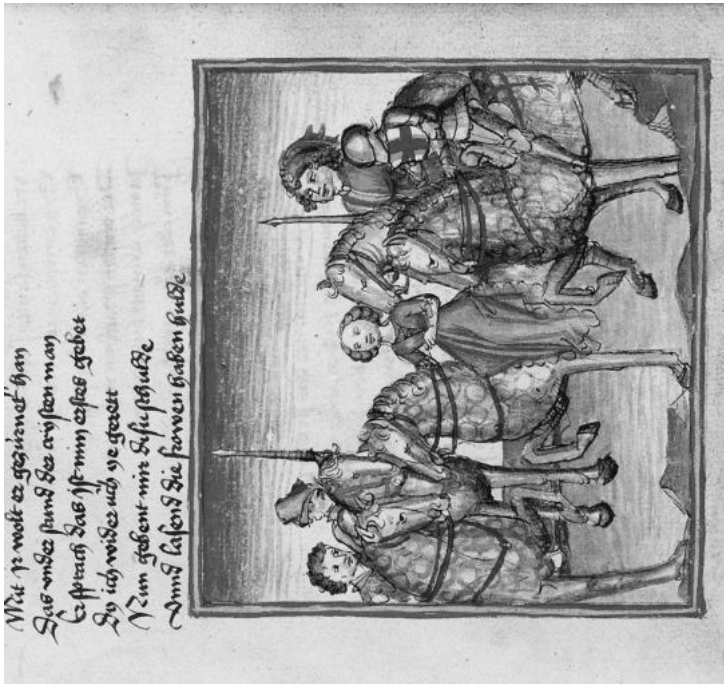 Mit jr wolt er gezürnet han
Das vnder stund der cristen man
Er sprach das ist min erstes gebet
Dz ich wider uch ye gerett
Nun gebent mir disu schulde
Vnnd lasend die frowen haben hulde